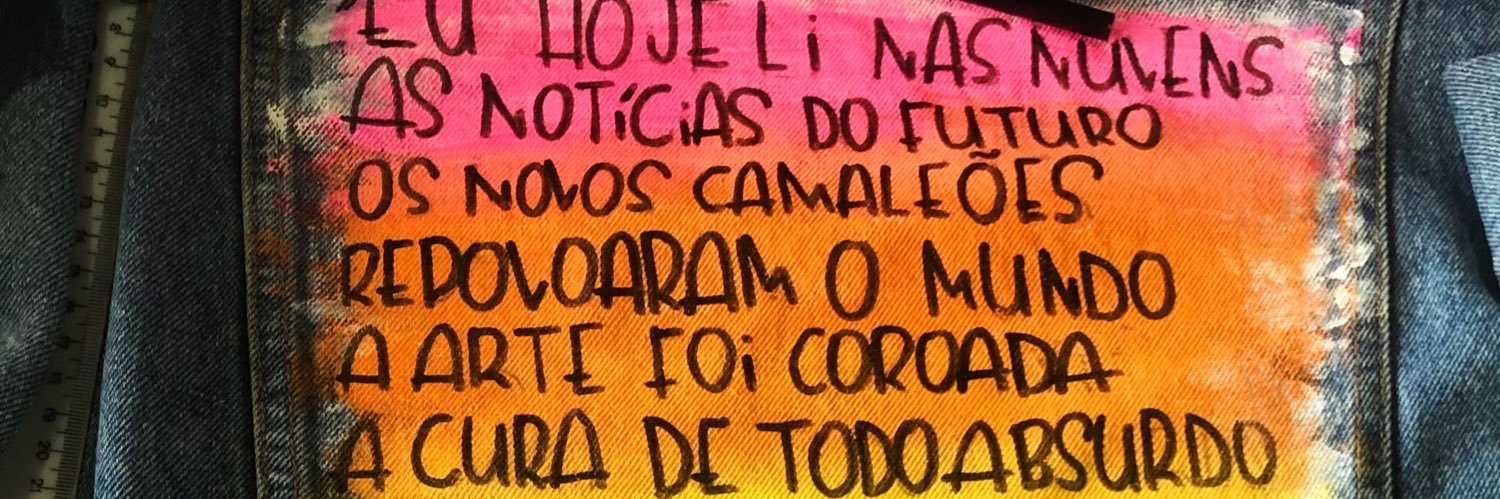 EU HOJE LI NAS NUVENS
AS NOTÍCIAS DO FUTURO
OS NOVOS CAMALEÕES
REPOVOARAM O MUNDO
A ARTE FOI COROADA
A CURA DE TODO ABSURDO